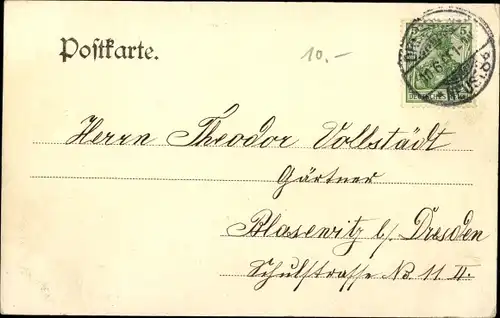 Postkarte.
10.-
5
Herrn Theodor Vollstädt
Gärtner
Blasewitz b/ Dresden
Schulstrasse No 11 II.